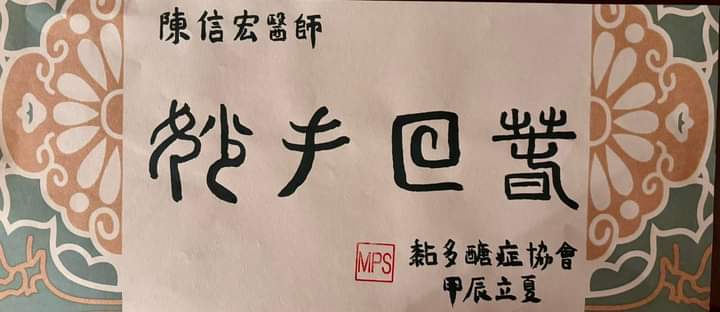 陳信宏醫師
妙手回春
MPS
黏多醣症協會
甲辰立夏